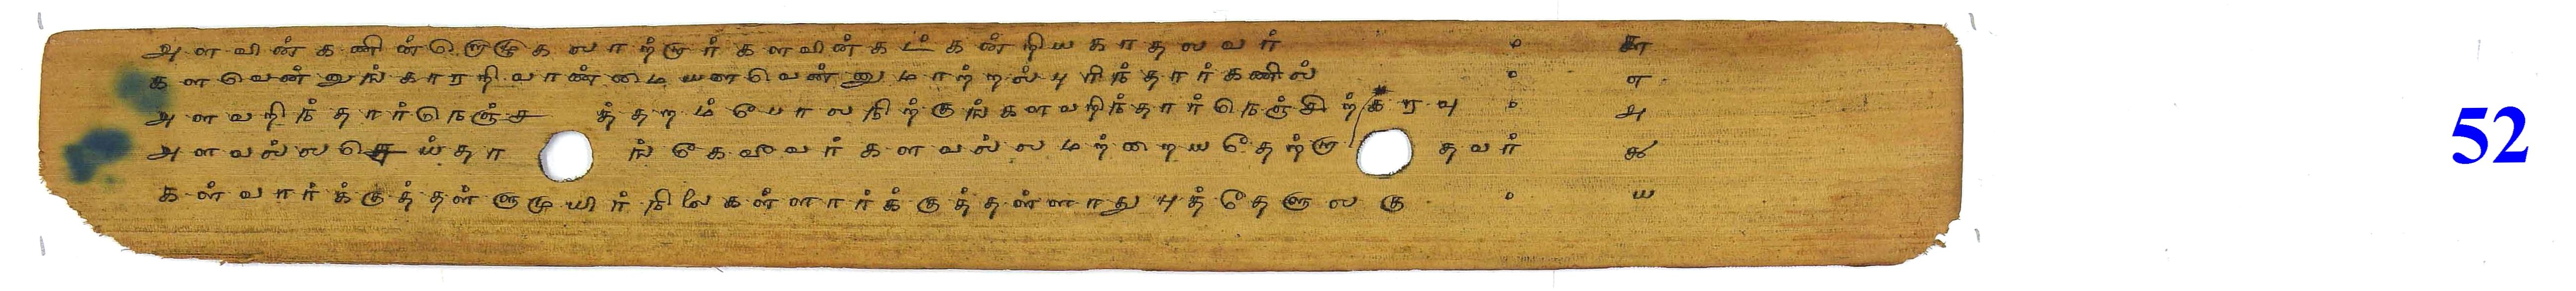 அளவின்கணின்றொழுகலாற்றார்களவின்கட்கன்றியகாதலவர் ௦ ௬
களவென்னுங்காரறிவாண்மையளவென்னுமாற்றல்புரிந்தார்கணில் ௦ ௭
அளவறிந்தார்நெஞ்ச த்தறம்போலநிற்குங்களவறிந்தார்நெஞ்சிற்கரவு ௦ ௮
அளவல்லசெய்தா ங்கேவீவர்களவல்லமற்றையதேற்றா தவர் ௯
கள்வார்க்குத்தள்ளுமுயிர்நிலைகள்ளார்க்குத்தள்ளாதுபுத்தேளுலகு ௦ ௰
52